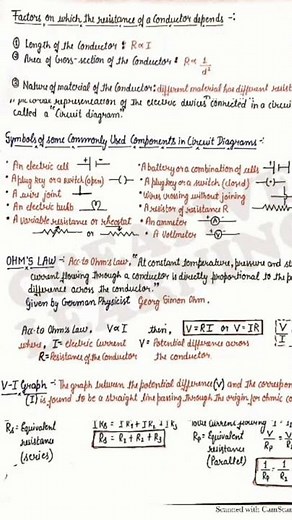 Factors on which the resistance of a conductor depends -:
① Length of the Conductor : R ∝ l
② Area of cross-section of the Conductor : R ∝ 1/d²
③ Nature of material of the Conductor: different material has different resist
pictorial representation of the electric devices connected in a circuit
called a "Circuit diagram".
Symbols of some Commonly Used Components in Circuit Diagrams -:
• An electric cell
• A battery or a combination of cells
• A plug key or a switch (open) -( )-
• A plug key or a switch (closed) -(·)-
• A wire joint
• Wires crossing without joining
• An electric bulb
• A resistor of resistance R
• A variable resistance or rheostat
or
• An ammeter A
• A Voltmeter V
OHM'S LAW -: Acc-to Ohm's Law, "At constant temperature, pressure and st
current flowing through a conductor is directly proportional to the p
difference across the conductor."
Given by German Physicist Georg Simon Ohm.
Acc-to Ohm's Law, V∝I then, V=RI or V=IR
where, I = electric Current V = Potential difference across
R=Resistance of the Conductor the conductor.
V-I Graph -: The graph between the potential difference (V) and the correspon
(I) is found to be a straight line passing through the origin for ohmic co
Rs = Equivalent
resistance
(series)
Rs = R1 + R2 + R3
Rp = Equivalent
resistance
(Parallel)
V/Rp = V/R
1/Rp = 1/R
Scanned with CamScan